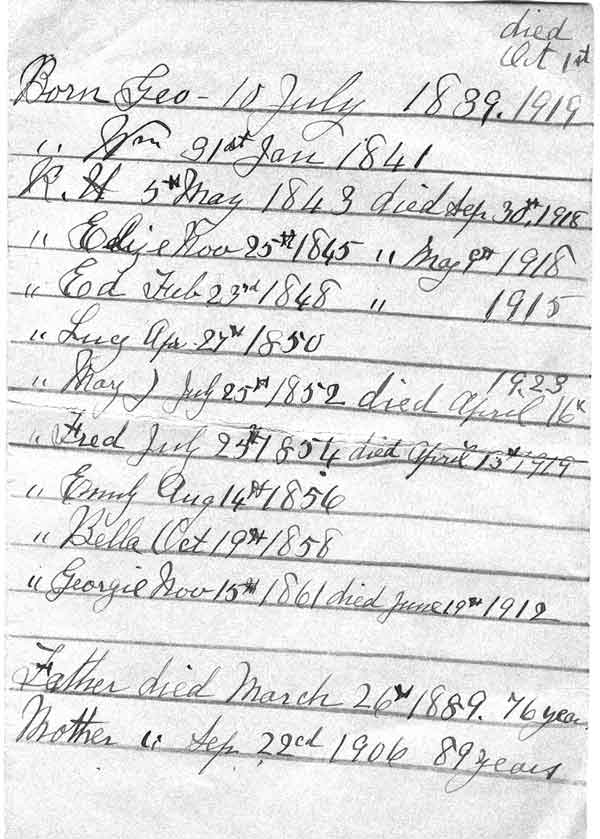 died
Oct 1st
Born Geo - 10 July 1839. 1919
" Wm 31st Jan 1841
R. H 5th May 1843 died Sep 30th, 1918
" Nov 25th 1845 " May 9th 1918
" Ed Feb 23rd 1848 " 1915
" Lucy Apr. 27th 1850
1923
" Mary J July 25th 1852 died April 16th
" Fred July 25th 1854 died April 13th 1919
" Emily Aug 14th 1856
" Bella Oct 19th 1858
" Georgie Nov 15th 1861 died June 19th 1912
Father died March 26th 1889. 76 years
Mother " Sep. 22cd 1906 89 years